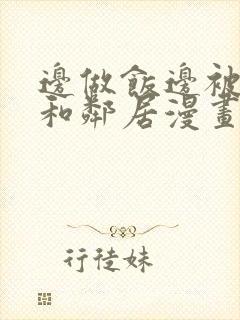 邊做飯邊被
和鄰居漫畫
行徒妹